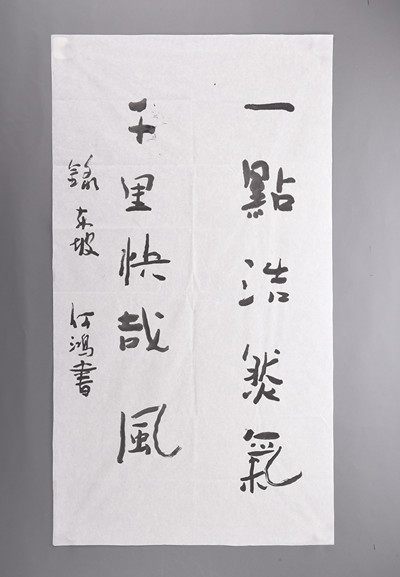 一點浩然氣
千里快哉風
錄东坡 何鴻書